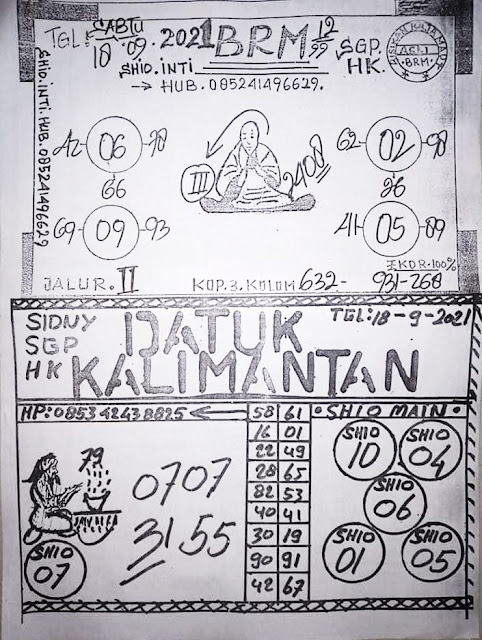 TGL: SABTU
18 · 09 · 2021 BRM 12
99
SGP.
HK.
ASLI
BRM
SHIO.INTI
→ HUB.085241496629.
SHIO.INTI.HUB.085241496629
42-06-98
66
69-09-93
III
2408
62-02-98
26
41-05-89
EKOR.100%
JALUR.II
KOP.3.KOLOM 632-
931-268
SIDNY
SGP
HK
DATUK
KALIMANTAN
TGL:18-9-2021
HP:085342438825
58 61
16 01
22 49
28 65
82 53
40 41
30 19
90 91
42 67
• SHIO MAIN •
SHIO 10
SHIO 04
SHIO 06
SHIO 01
SHIO 05
79
0707
3155
SHIO
07